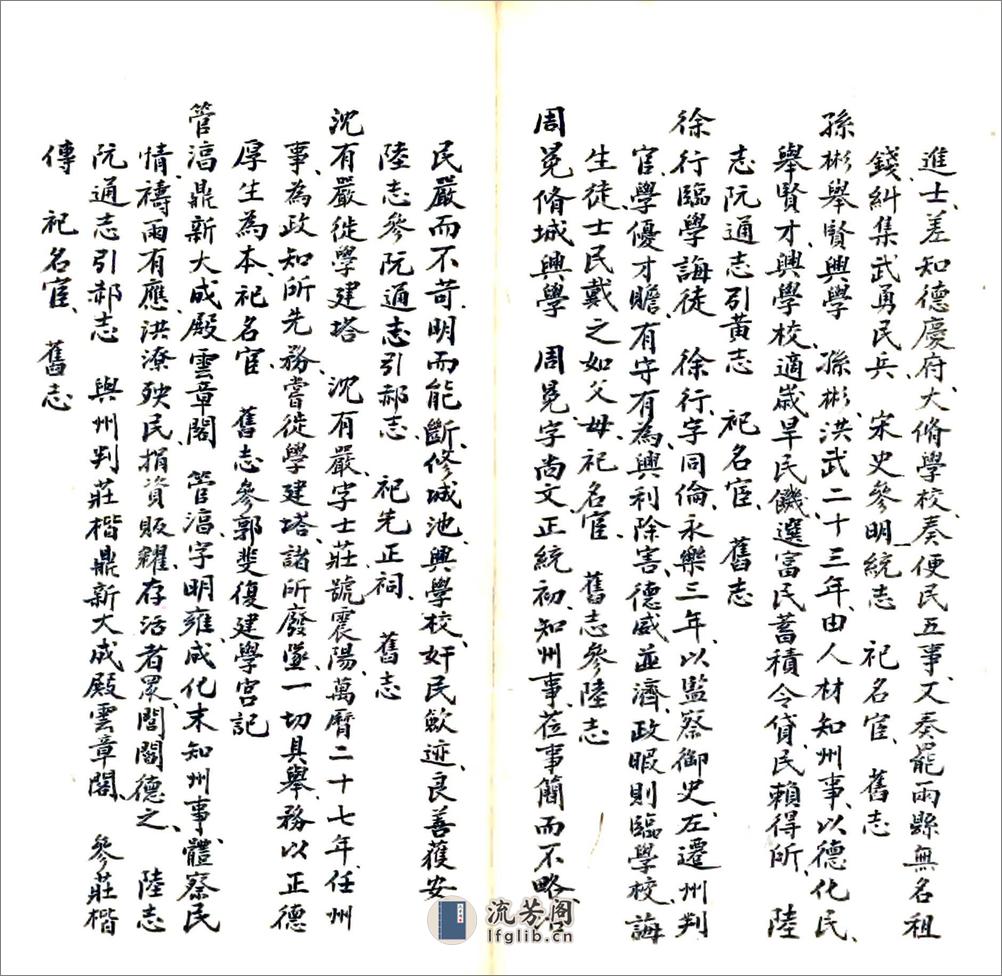 進士、差知德慶府、大脩學校、奏便民五事、又奏罷兩縣無名租
錢、糾集武勇民兵、　宋史參明統志　祀名宦、舊志
孫彬舉賢興學　孫彬、洪武二十三年、由人材知州事、以德化民、
舉賢才、興學校、適歲旱民饑、選富民蓄積、令貸民賴得所、　陸
志阮通志引黃志　祀名宦、舊志
徐行臨學誨徒　徐行、字同倫、永樂三年、以監察御史左遷州判
官、學優才贍、有守有為、興利除害、德威並濟、政暇則臨學校、誨
生徒、士民戴之如父母、祀名宦、　舊志參陸志
周冕脩城興學　周冕、字尚文、正統初、知州事、莅事簡而不略、治
民嚴而不苛、明而能斷、修城池、興學校、奸民歛迹、良善獲安、
陸志參阮通志引郝志　祀先正祠、　舊志
沈有嚴徙學建塔　沈有嚴、字士莊、號震陽、萬曆二十七年、任州
事、為政知所先務、嘗徙學建塔、諸所廢墜、一切具舉、務以正德
厚生為本、祀名宦、　舊志參郭棐復建學宮記
管滈鼎新大成殿雲章閣　管滈、字明雍、成化末知州事、體察民
情、禱雨有應、洪潦殃民、捐資販糶、存活者眾、閭閻德之、　陸志
阮通志引郝志　與州判莊楷鼎新大成殿雲章閣、　參莊楷
傳　祀名宦、　舊志
流芳阁
lfglib.cn